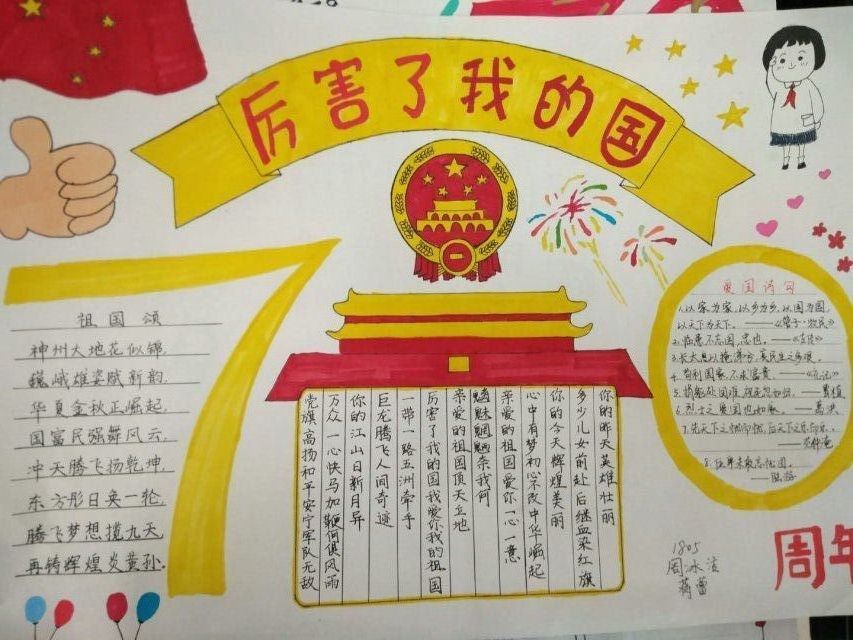 厉害了我的国
70
祖国颂
神州大地花似锦,
巍峨雄姿赋新韵,
华夏金秋正崛起,
国富民强舞风云,
冲天腾飞扬乾坤,
东方彤日奂一轮,
腾飞梦想揽九天,
再铸辉煌炎黄孙.
你的昨天英雄壮丽
多少儿女前赴后继血染红旗
你的今天辉煌美丽
心中有梦初心不改中华崛起
亲爱的祖国爱你一心一意
魑魅魍魉奈我何
亲爱的祖国顶天立地
厉害了我的国我爱你我的祖国
一带一路五洲牵手
巨龙腾飞人间奇迹
你的江山日新月异
万众一心快马加鞭何惧风雨
党旗高扬和平安宁军队无敌
爱国诗句
1.以家为家,以乡为乡,以国为国,
以天下为天下。——《管子·牧民》
2.临患不忘国,忠也。——《左传》
3.长太息以掩涕兮,哀民生之多艰。
4.苟利国家,不求富贵。——《礼记》
5.捐躯赴国难,视死忽如归。——曹植
6.烈士之爱国也如家。——葛洪
7.先天下之忧而忧,后天下之乐而乐。
——范仲淹
8.位卑未敢忘忧国。
——陆游
1805
周冰洁
蒋蕾
周年